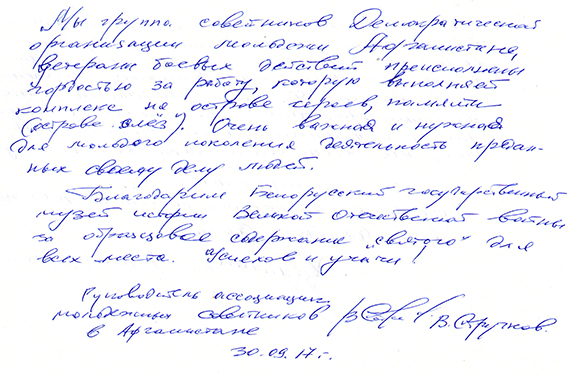 Мы группа советников Демократической
организации молодежи Афганистана,
ветераны боевых действий преисполнены
гордостью за работу, которую выполняет
комплекс на острове героев, памяти
(острове слёз"). Очень важная и нужная
для молодого поколения деятельность предан-
ных своему делу людей.
Благодарим Белорусский государственный
музей истории Великой Отечественной войны
за образцовое содержание „святого" для
всех места. Успехов и удачи!
Руководитель ассоциации
молодежных советников В. Стручков.
в Афганистане
30.09.17г.